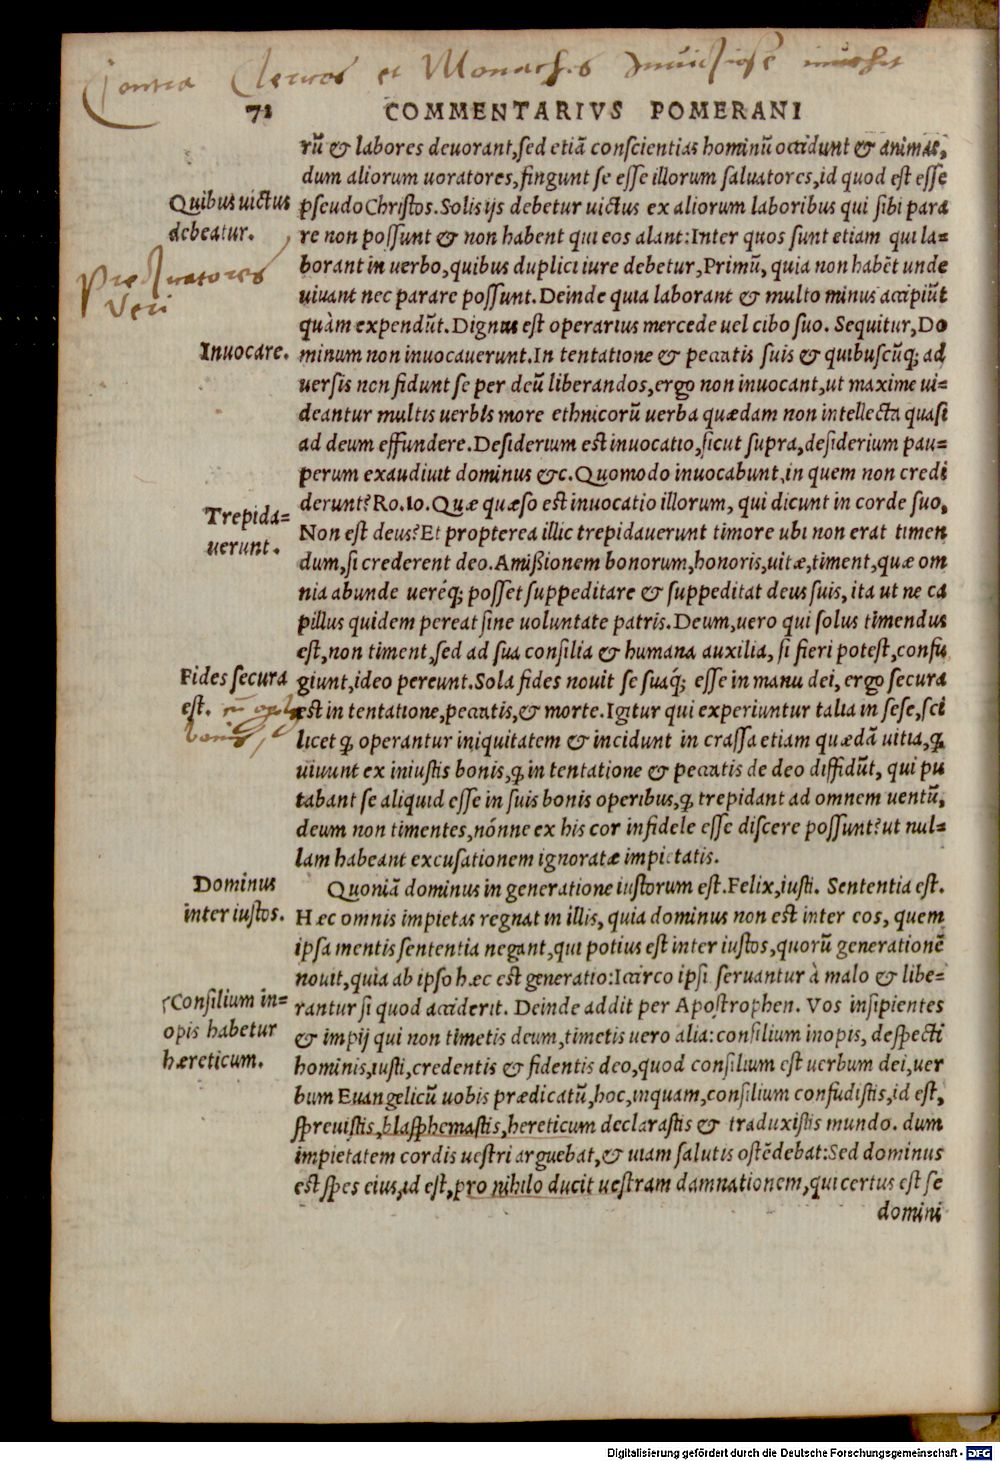 Contra Clericos et Monachos
72 COMMENTARIVS POMERANI
rū & labores deuorant,sed etiā conscientias hominū occidunt & animas,
dum aliorum uoratores,fingunt se esse illorum saluatores,id quod est esse
Quibus uictus
debeatur.
pseudoChristos.Solis ijs debetur uictus ex aliorum laboribus qui sibi para
re non possunt & non habent qui eos alant:Inter quos sunt etiam qui la=
Predicatores
Veri
borant in uerbo,quibus duplici iure debetur,Primū, quia non habēt unde
uiuant nec parare possunt.Deinde quia laborant & multo minus accipiūt
quàm expendūt.Dignus est operarius mercede uel cibo suo. Sequitur,Do
Inuocare.
minum non inuocauerunt.In tentatione & peccatis suis & quibuscūq; ad
uersis non fidunt se per deū liberandos,ergo non inuocant,ut maxime ui=
deantur multis uerbis more ethnicorū uerba quædam non intellecta quasi
ad deum effundere.Desiderium est inuocatio,sicut supra,desiderium pau=
perum exaudiuit dominus &c.Quomodo inuocabunt,in quem non credi
derunt?Ro.10.Quæ quæso est inuocatio illorum, qui dicunt in corde suo,
Trepida=
uerunt.
Non est deus?Et propterea illic trepidauerunt timore ubi non erat timen
dum,si crederent deo.Amißionem bonorum,honoris,uitæ,timent,quæ om
nia abunde uereq́; posset suppeditare & suppeditat deus suis, ita ut ne ca
pillus quidem pereat sine uoluntate patris.Deum,uero qui solus timendus
est,non timent,sed ad sua consilia & humana auxilia, si fieri potest,confu
Fides secura
est.
giunt,ideo pereunt.Sola fides nouit se suaq́; esse in manu dei, ergo secura
est in tentatione,peccatis,& morte.Igitur qui experiuntur talia in sese,sci
licet ꝙ operantur iniquitatem & incidunt in crassa etiam quædā uitia,ꝙ
uiuunt ex iniustis bonis,ꝙ in tentatione & peccatis de deo diffidūt, qui pu
tabant se aliquid esse in suis bonis operibus,ꝙ trepidant ad omnem uentū,
deum non timentes,nónne ex his cor infidele esse discere possunt?ut nul=
lam habeant excusationem ignoratæ impietatis.
Dominus
inter iustos.
Quoniā dominus in generatione iustorum est.Felix,iusti. Sententia est.
Hæc omnis impietas regnat in illis, quia dominus non est inter eos, quem
ipsa mentis sententia negant,qui potius est inter iustos,quorū generationē
nouit,quia ab ipso hæc est generatio:Iccirco ipsi seruantur à malo & libe=
Consilium in=
opis habetur
hæreticum.
rantur si quod acciderit. Deinde addit per Apostrophen. Vos insipientes
& impij qui non timetis deum,timetis uero alia:consilium inopis, despecti
hominis,iusti,credentis & fidentis deo,quod consilium est uerbum dei,uer
bum Euangelicū uobis prædicatū,hoc,inquam,consilium confudistis,id est,
spreuistis,blasphemastis,hereticum declarastis & traduxistis mundo. dum
impietatem cordis uestri arguebat,& uiam salutis ostēdebat:Sed dominus
est spes eius,id est,pro nihilo ducit uestram damnationem,qui certus est se
domini
Digitalisierung gefördert durch die Deutsche Forschungsgemeinschaft - DFG